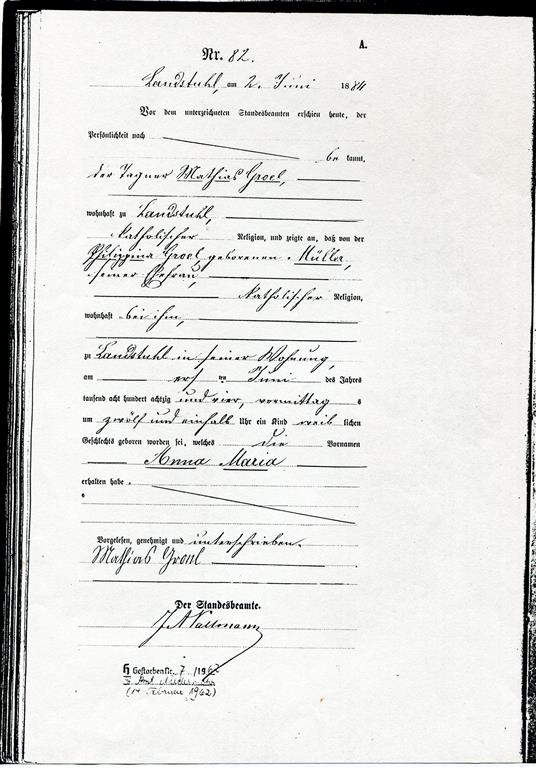 A.
Nr. 82.
Landstuhl, am 2. Juni 1884
Vor dem unterzeichneten Standesbeamten erschien heute, der
Persönlichkeit nach
be kannt,
der Tagner Mathias Groel,
wohnhaft zu Landstuhl,
katholischer Religion, und zeigte an, daß von der
Philippina Groel, geborenen Müller,
seiner Ehefrau,
katholischer Religion,
wohnhaft bei ihm,
zu Landstuhl in seiner Wohnung,
am ersten Juni des Jahres
tausend acht hundert achtzig und vier, vormittag s
um zwölf und einhalb Uhr ein Kind weib lichen
Geschlechts geboren worden sei, welches die Vornamen
Anna Maria
erhalten habe.
Vorgelesen, genehmigt und unterschrieben.
Mathias
Der Standesbeamte.
Gestorben Nr. 7 /1962
(14. Februar 1962)